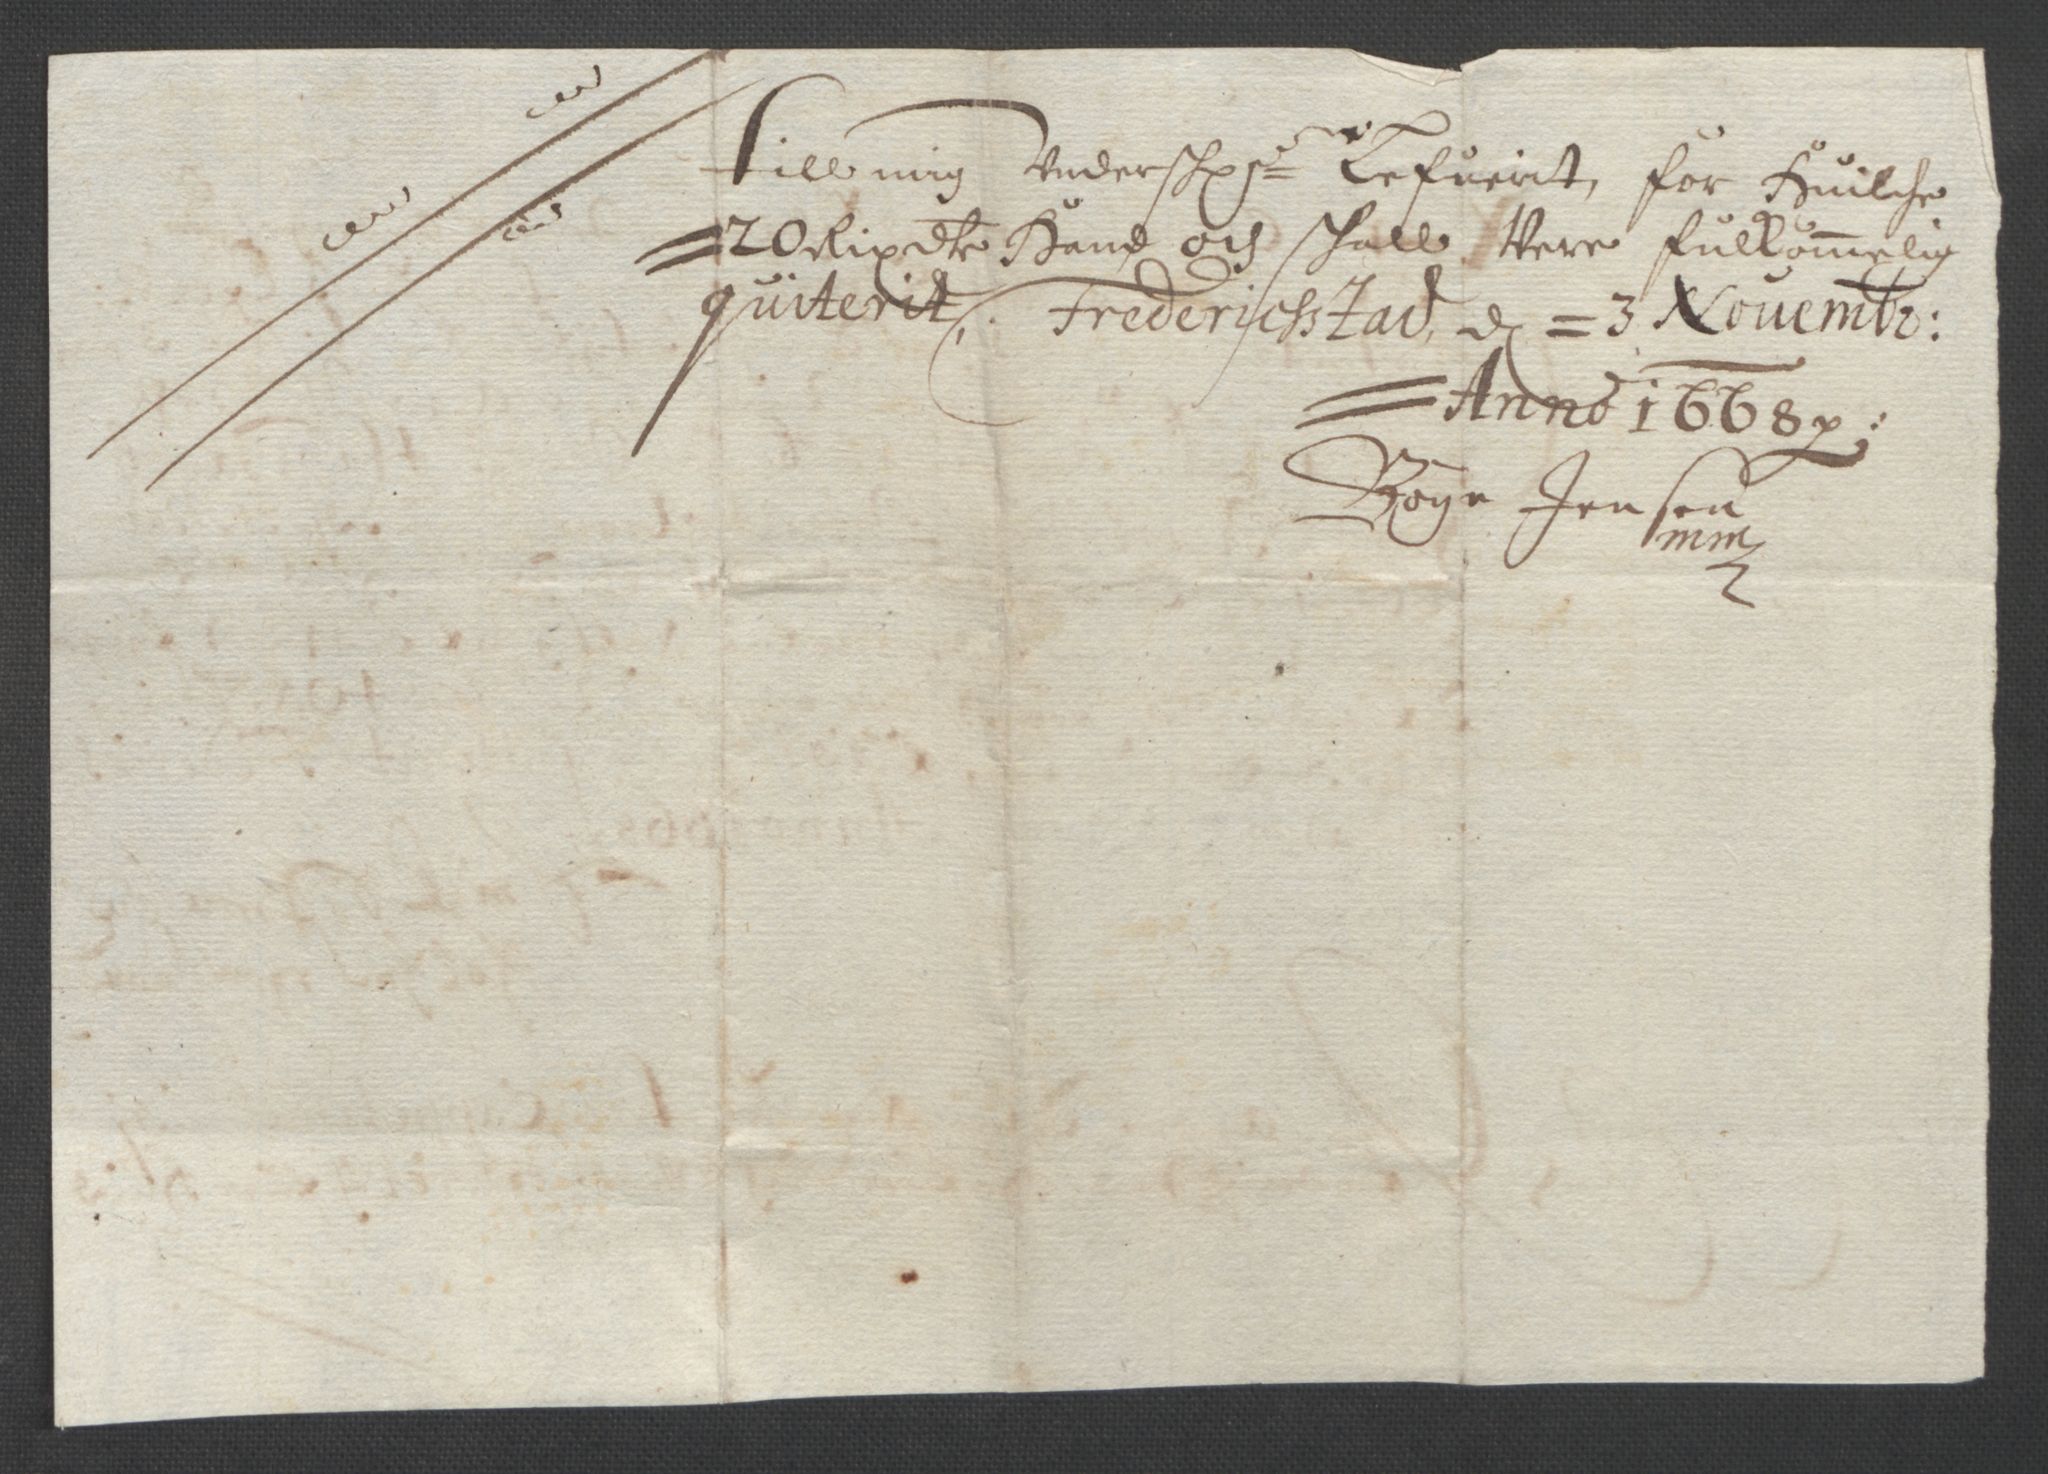 till mig Underschrefne Lefuerit, for Huilche
=20 Rixdlr Hand och schall Vere fulkommelig
quiterit, Frederichstad, d =3 Nouembr:
=Anno 1668 p:
Boye Jensen
mm